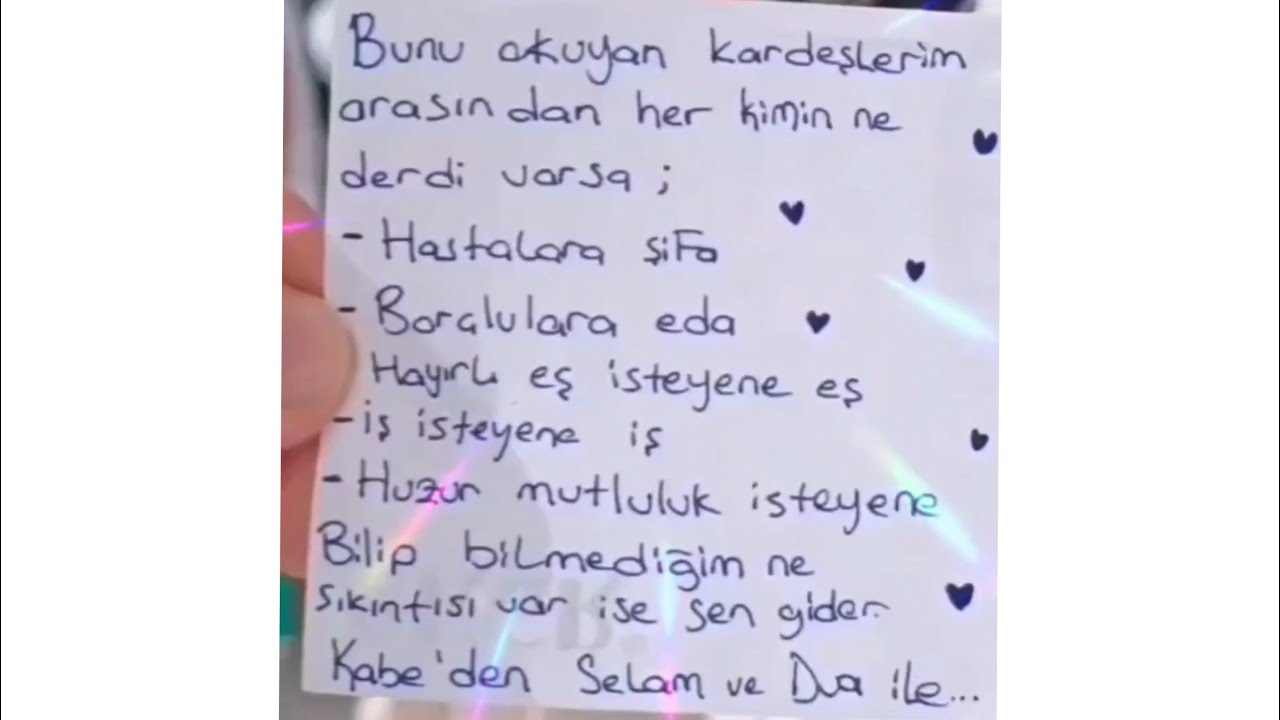 Bunu okuyan kardeşlerim
arasından her kimin ne
derdi varsa ;
- Hastalara şifa
- Borçlulara eda
Hayırlı eş isteyene eş
- iş isteyene iş
- Huzur mutluluk isteyene
Bilip bilmediğim ne
sıkıntısı var ise sen gider
Kabe'den Selam ve Dua ile...